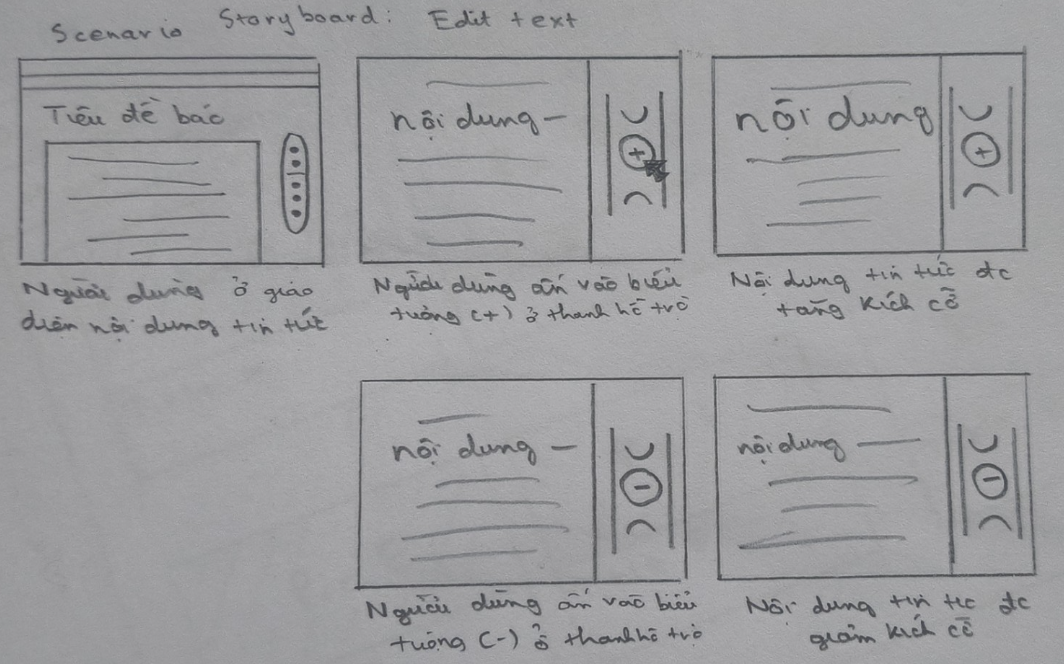 Scenario Storyboard: Edit text
Tiêu đề báo
Người dùng ở giao
diện nội dung tin tức
nội dung
+
Người dùng ấn vào biểu
tượng (+) ở thanh hỗ trợ
nội dung
+
Nội dung tin tức đc
tăng kích cỡ
nội dung
-
Người dùng ấn vào biểu
tượng (-) ở thanh hỗ trợ
nội dung
-
Nội dung tin tức đc
giảm kích cỡ